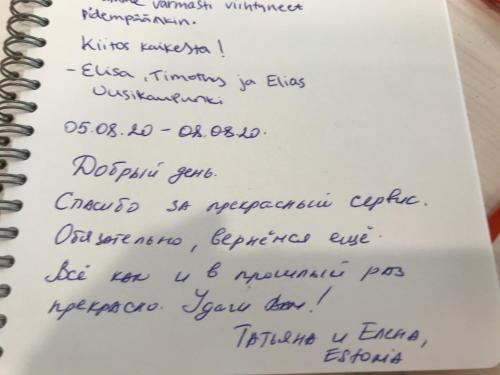 varmasti viihtyneet
pidempäänkin.
Kiitos kaikesta!
- Elisa, Timothy ja Elias
Uusikaupunki
05.08.20 – 08.08.20.
Добрый день.
Спасибо за прекрасный сервис.
Обязательно, вернёмся ещё.
Всё как и в прошлый раз
прекрасно. Удачи Вам!
Татьяна и Елена,
Estonia